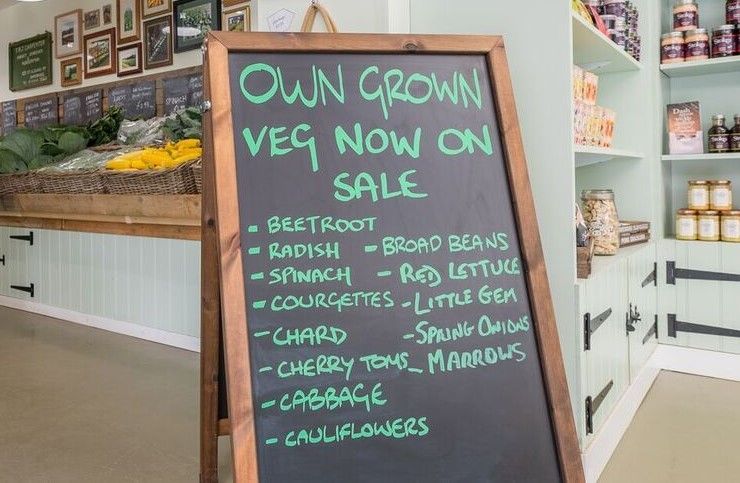 OWN GROWN
VEG NOW ON
SALE
- BEETROOT
- RADISH
- SPINACH
- COURGETTES
- CHARD
- CHERRY TOMS
- CABBAGE
- CAULIFLOWERS
- BROAD BEANS
- RED LETTUCE
- LITTLE GEM
- SPRING ONIONS
- MARROWS
SPINACH